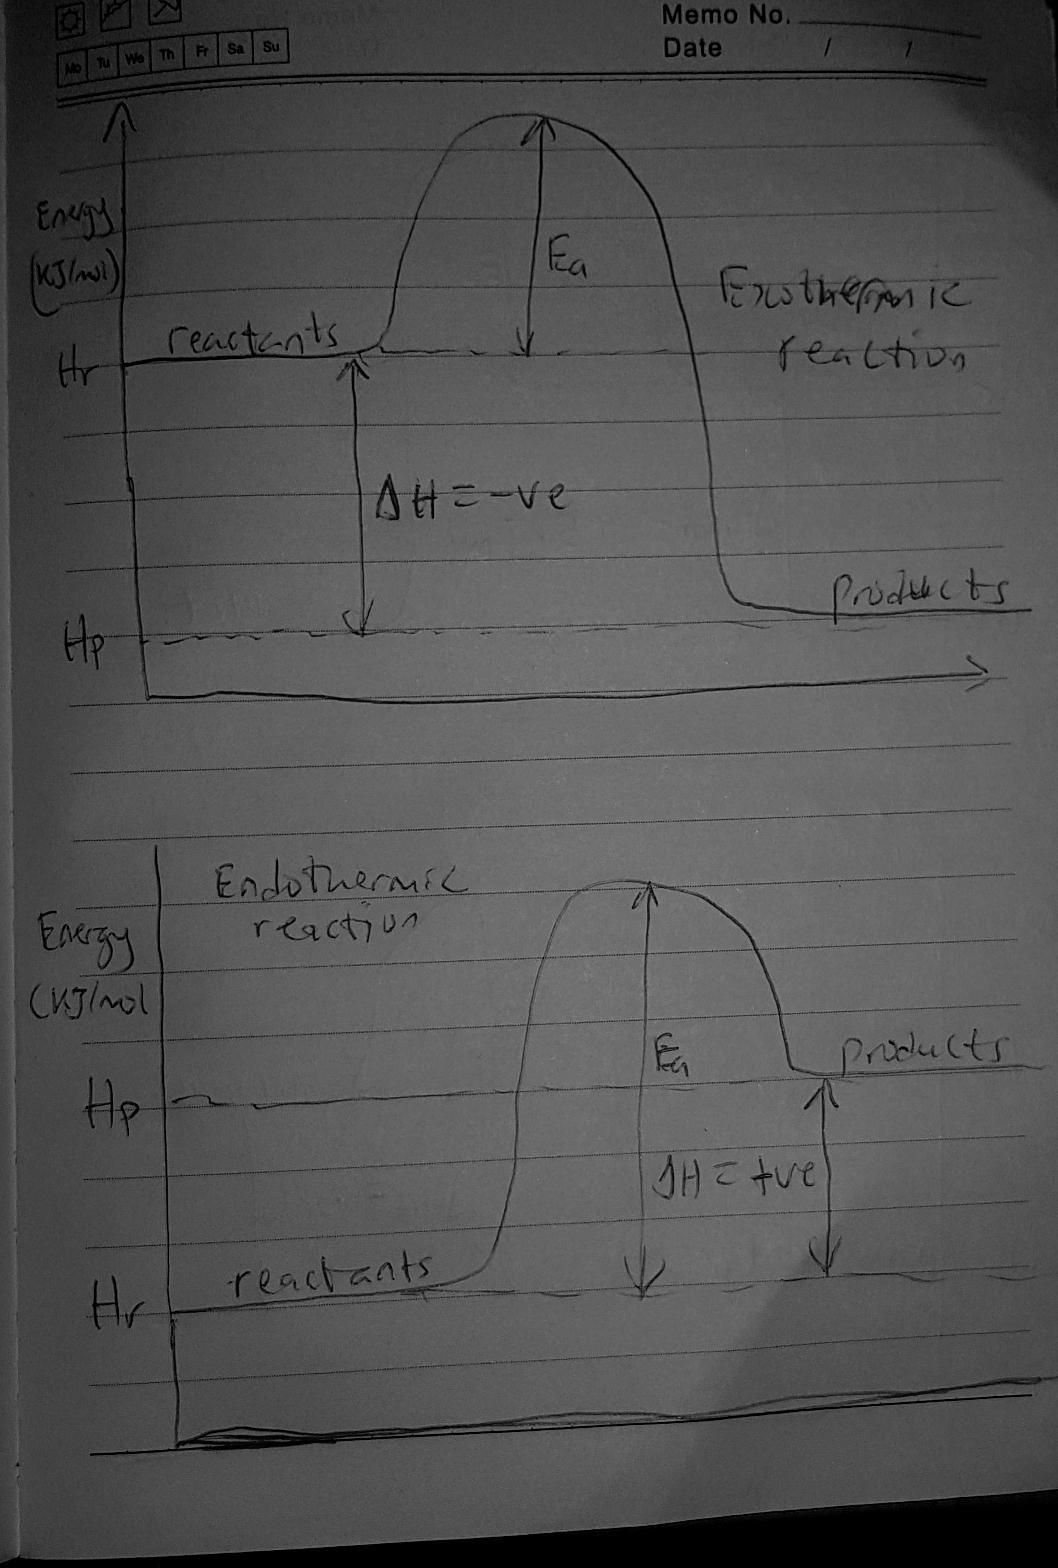 Memo No.
Mo Tu We Th Fr Sa Su
Date / /
Energy
(KJ/mol)
Ea
Exothermic
reaction
reactants
Hr
ΔH = -ve
products
Hp
Endothermic
reaction
Energy
(KJ/mol
Ea
products
Hp
ΔH = +ve
reactants
Hr